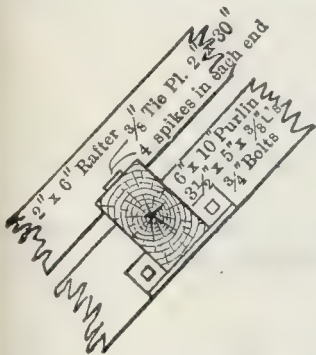 2" x 6" Rafter 3/8" Tie Pl. 2" x 30"
4 spikes in each end
6" x 10" Purlin
3 1/2" x 5" x 3/8" L's
3/4" Bolts